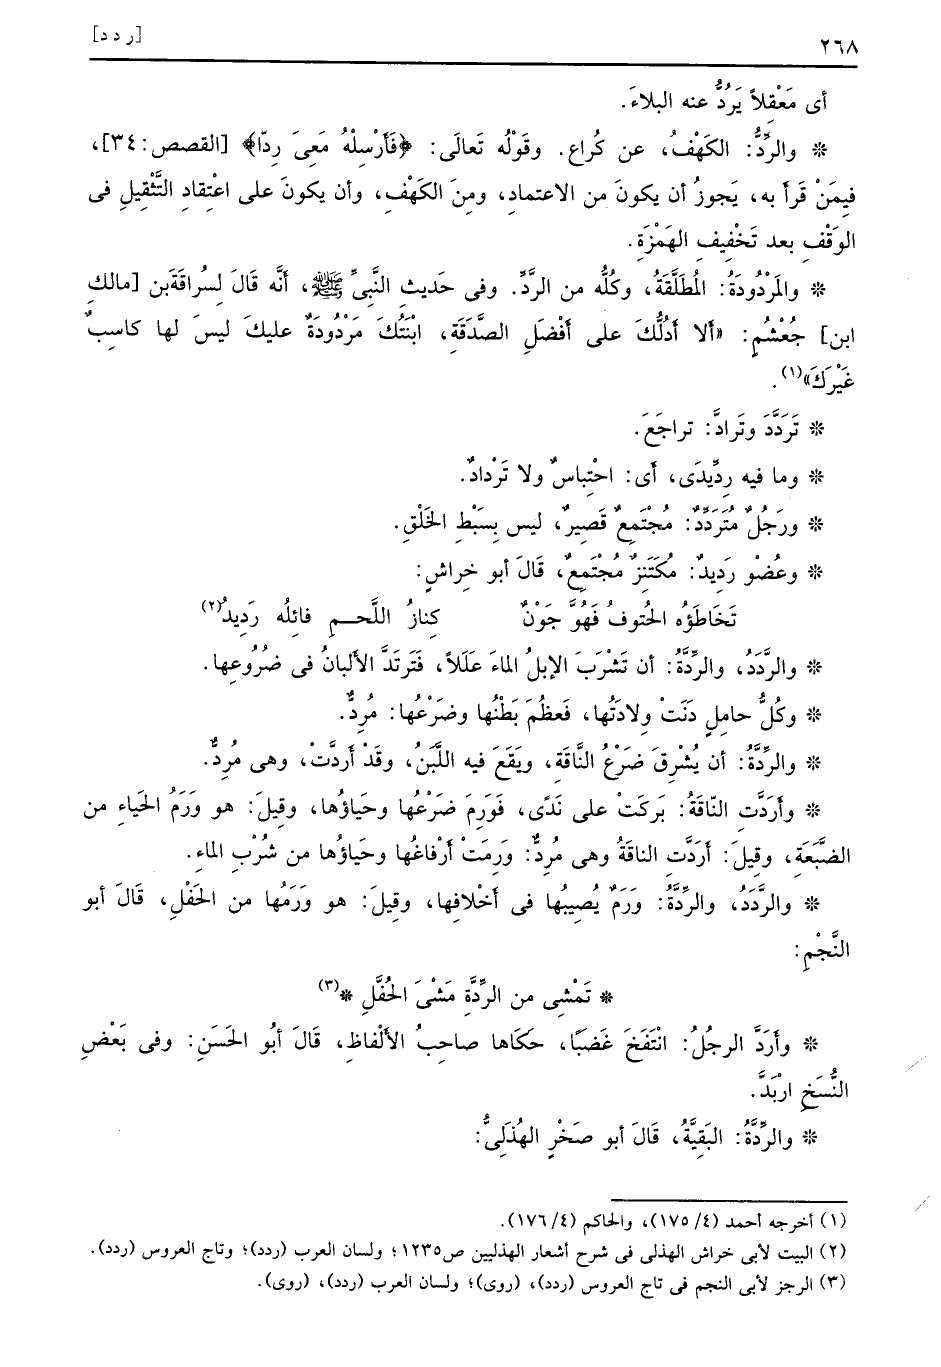 ٢٦٨ [ر د د]
أى مَعْقِلاً يَرُدُّ عنه البلاءَ.
* والرِّدُّ: الكَهْفُ، عن كُراع. وقَوْلُه تَعالَى: ﴿فَأَرْسِلْهُ مَعِىَ رِدّا﴾ [القصص: ٣٤]،
فيمَنْ قَرأَ به، يَجوزُ أن يكونَ من الاعتمادِ، ومِنَ الكَهْفِ، وأن يكونَ على اعْتِقادِ التَّثْقِيلِ فى
الوَقْفِ بعد تَخْفِيفِ الهَمْزَةِ.
* والمَرْدُودَةُ: المُطَلَّقَةُ، وكُلُّه من الرَّدِّ. وفى حَديثِ النَّبىِّ ﷺ، أَنَّه قَالَ لِسُراقَةَبن [مالكِ
ابن] جُعْشُمٍ: «ألا أدُلُّكَ على أفْضَلِ الصَّدَقَةِ، ابْنَتُكَ مَرْدُودَةٌ عليكَ ليسَ لها كاسِبٌ
غَيْرَكَ»(١).
* تَرَدَّدَ وتَرادَّ: تراجَعَ.
* وما فيه رِدِّيدَى، أى: احْتِباسٌ ولا تَرْدادٌ.
* ورَجُلٌ مُتَرَدِّدٌ: مُجْتَمِعٌ قَصِيرٌ، ليس بِسَبْطِ الخَلْقِ.
* وعُضْو رَدِيدٌ: مكْتَنِزٌ مُجْتَمِعٌ، قَالَ أبو خِراشٍ:
تَخَاطَؤُه الحُتوفُ فَهُوَّ جَوْنٌ كِنازُ اللَّحمِ فائلُه رَدِيدُ(٢)
* والرَّدَدُ، والرِّدَّةُ: أن تَشْرَبَ الإبلُ الماءَ عَلَلاً، فَتَرتَدَّ الألبانُ فى ضُرُوعِها.
* وكُلُّ حامِلٍ دَنَتْ ولادَتُها، فَعظُمَ بَطْنُها وضَرْعُها: مُرِدٌّ.
* والرِّدَّةُ: أن يُشْرِقَ ضَرْعُ النَّاقَةِ، ويَقَعَ فيه اللَّبَنُ، وقَدْ أردَّتْ، وهى مُرِدٌّ.
* وأرَدَّت النّاقَةُ: بَركَتْ على نَدًى، فَوَرِمَ ضَرْعُها وحَياؤُها، وقِيلَ: هو وَرَمُ الحَياءِ من
الضَّبَعَةِ، وقيلَ: أرَدَّت الناقةُ وهى مُرِدٌّ: وَرِمَتْ أَرْفاغُها وحَياؤُها من شُرْبِ الماءِ.
* والرَّدَدُ، والرِّدَّةُ: وَرَمٌ يُصِيبُها فى أخْلافِها، وقيلَ: هو وَرَمُها من الحَفْلِ، قَالَ أبو
النَّجْمِ:
* تَمْشِى من الرِّدَّةِ مَشْىَ الحُفَّلِ *(٣)
* وأرَدَّ الرجلُ: انْتَفَخَ غَضَبًا، حكَاها صاحِبُ الألْفاظِ، قَالَ أبُو الحَسَنِ: وفى بَعْضِ
النُّسَخِ اربَدَّ.
* والرِّدَّةُ: البَقِيَّةُ، قَالَ أبو صَخْرٍ الهُذَلِىُّ:
(١) أخرجه أحمد (٤/ ١٧٥)، والحاكم (٤/ ١٧٦).
(٢) البيت لأبى خراش الهذلى فى شرح أشعار الهذليين ص١٢٣٥؛ ولسان العرب (ردد)؛ وتاج العروس (ردد).
(٣) الرجز لأبى النجم فى تاج العروس (ردد)، (روى)؛ ولسان العرب (ردد)، (روى).